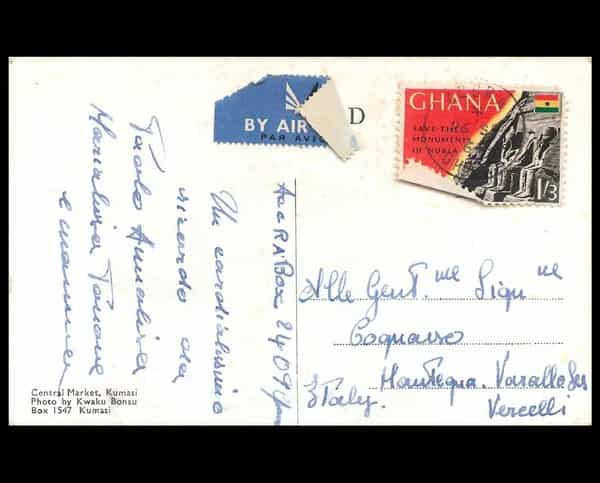 BY AIR
PAR AVION
D
GHANA
SAVE THE
MONUMENTS
OF NUBIA
1/3
Accra Box 2409
Un cordialissimo
ricordo da
Paolo Annalisa
e mamma
Alle Gent.me Sign.ne
Cognasso
Varallo Ses
Vercelli
Italy.
Central Market, Kumasi
Photo by Kwaku Bonsu
Box 1547 Kumasi